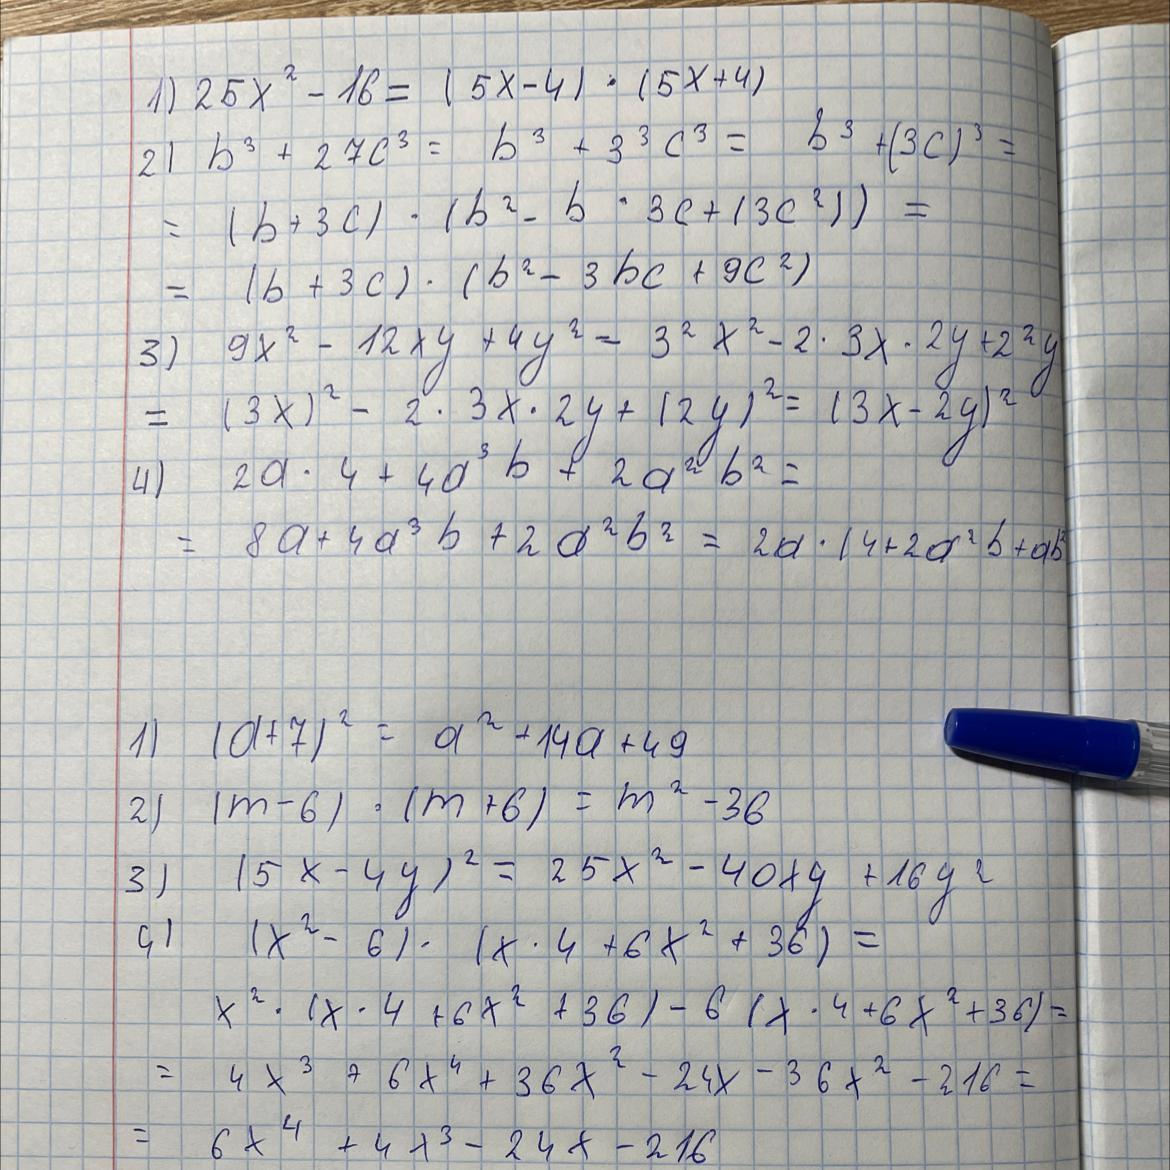 1) 25x² - 16 = (5x-4) · (5x+4)
2) b³ + 27c³ = b³ + 3³c³ = b³ + (3c)³ =
= (b+3c) · (b² - b · 3c + (3c²)) =
= (b + 3c) · (b² - 3bc + 9c²)
3) 9x² - 12xy + 4y² = 3²x² - 2 · 3x · 2y + 2²y
= (3x)² - 2 · 3x · 2y + (2y)² = (3x - 2y)²
4) 2a · 4 + 4a³b + 2a²b² =
= 8a + 4a³b + 2a²b² = 2a · (4 + 2a²b + ab²
1) (a+7)² = a² + 14a + 49
2) (m-6) · (m+6) = m² - 36
3) (5x - 4y)² = 25x² - 40xy + 16y²
4) (x² - 6) · (x · 4 + 6x² + 36) =
x² · (x · 4 + 6x² + 36) - 6 (x · 4 + 6x² + 36) =
= 4x³ + 6x⁴ + 36x² - 24x - 36x² - 216 =
= 6x⁴ + 4x³ - 24x - 216